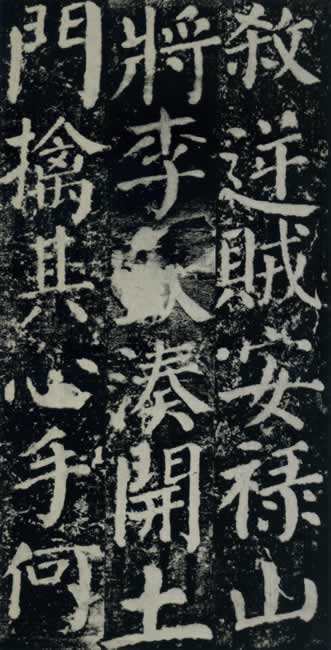 殺逆賊安禄山
將李湊開土
門擒其心手何